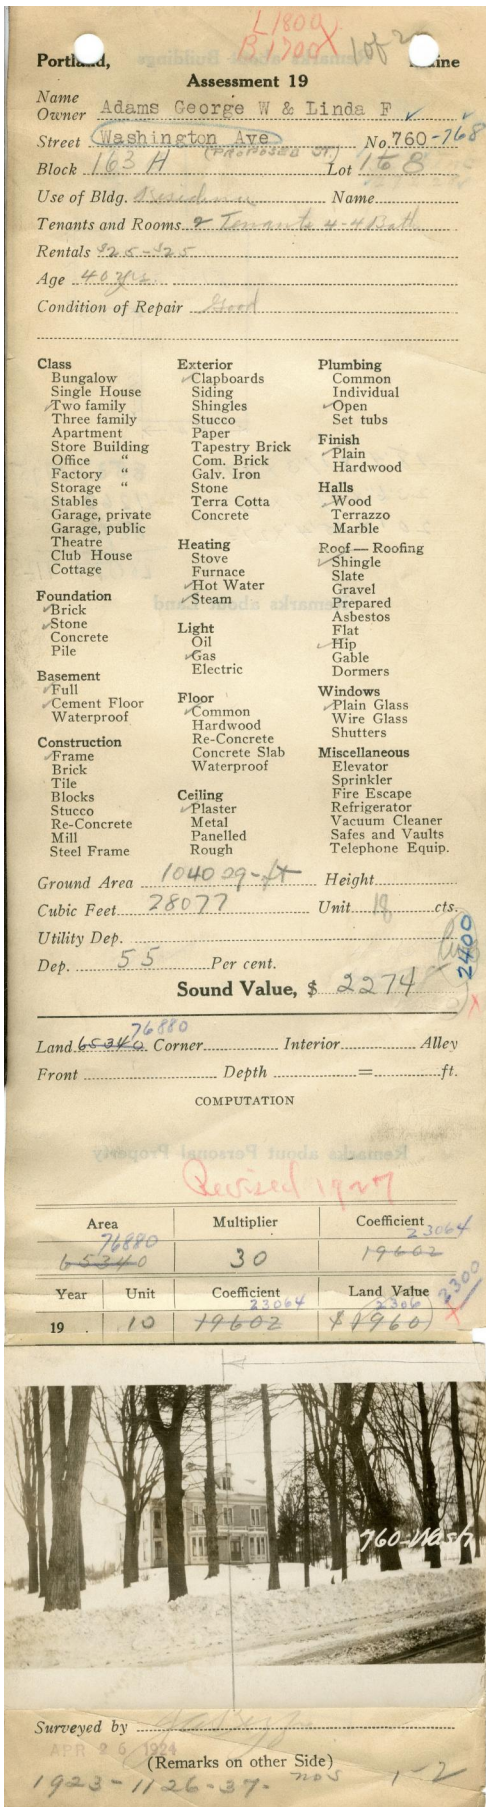 L1800
B1700 X 1 of 2
Portland, Maine
Assessment 19
Name
Owner Adams George W & Linda F
Street Washington Ave No. 760-768
(PROPOSED ST.)
Block 163 A Lot 1 to 8
Use of Bldg. Residence Name
Tenants and Rooms 2 Tenants 4-4 Bath
Rentals $25-$25
Age 40 yrs
Condition of Repair Good
Class
Bungalow
Single House
✓Two family
Three family
Apartment
Store Building
Office "
Factory "
Storage "
Stables
Garage, private
Garage, public
Theatre
Club House
Cottage
Foundation
✓Brick
✓Stone
Concrete
Pile
Basement
✓Full
✓Cement Floor
Waterproof
Construction
✓Frame
Brick
Tile
Blocks
Stucco
Re-Concrete
Mill
Steel Frame
Exterior
✓Clapboards
Siding
Shingles
Stucco
Paper
Tapestry Brick
Com. Brick
Galv. Iron
Stone
Terra Cotta
Concrete
Heating
Stove
Furnace
✓Hot Water
✓Steam
Light
Oil
✓Gas
Electric
Floor
✓Common
Hardwood
Re-Concrete
Concrete Slab
Waterproof
Ceiling
✓Plaster
Metal
Panelled
Rough
Plumbing
Common
Individual
✓Open
Set tubs
Finish
✓Plain
Hardwood
Halls
✓Wood
Terrazzo
Marble
Roof — Roofing
✓Shingle
Slate
Gravel
Prepared
Asbestos
Flat
✓Hip
Gable
Dormers
Windows
✓Plain Glass
Wire Glass
Shutters
Miscellaneous
Elevator
Sprinkler
Fire Escape
Refrigerator
Vacuum Cleaner
Safes and Vaults
Telephone Equip.
Ground Area 1040 sq-ft Height
Cubic Feet 28077 Unit 18 cts.
Utility Dep.
Dep. 55 Per cent.
2400
Sound Value, $ 2274
X
76880
Land 65340 Corner Interior Alley
Front Depth = ft.
COMPUTATION
Remarks about Personal Property
Revised 1927
Area Multiplier Coefficient
76880 23064
65340 30 19602
Year Unit Coefficient Land Value
23064 2306 2300
19 . 10 19602 $1960 X
760-Wash
Surveyed by
APR 26 1924
(Remarks on other Side)
1923-1126-37- nos 1-2